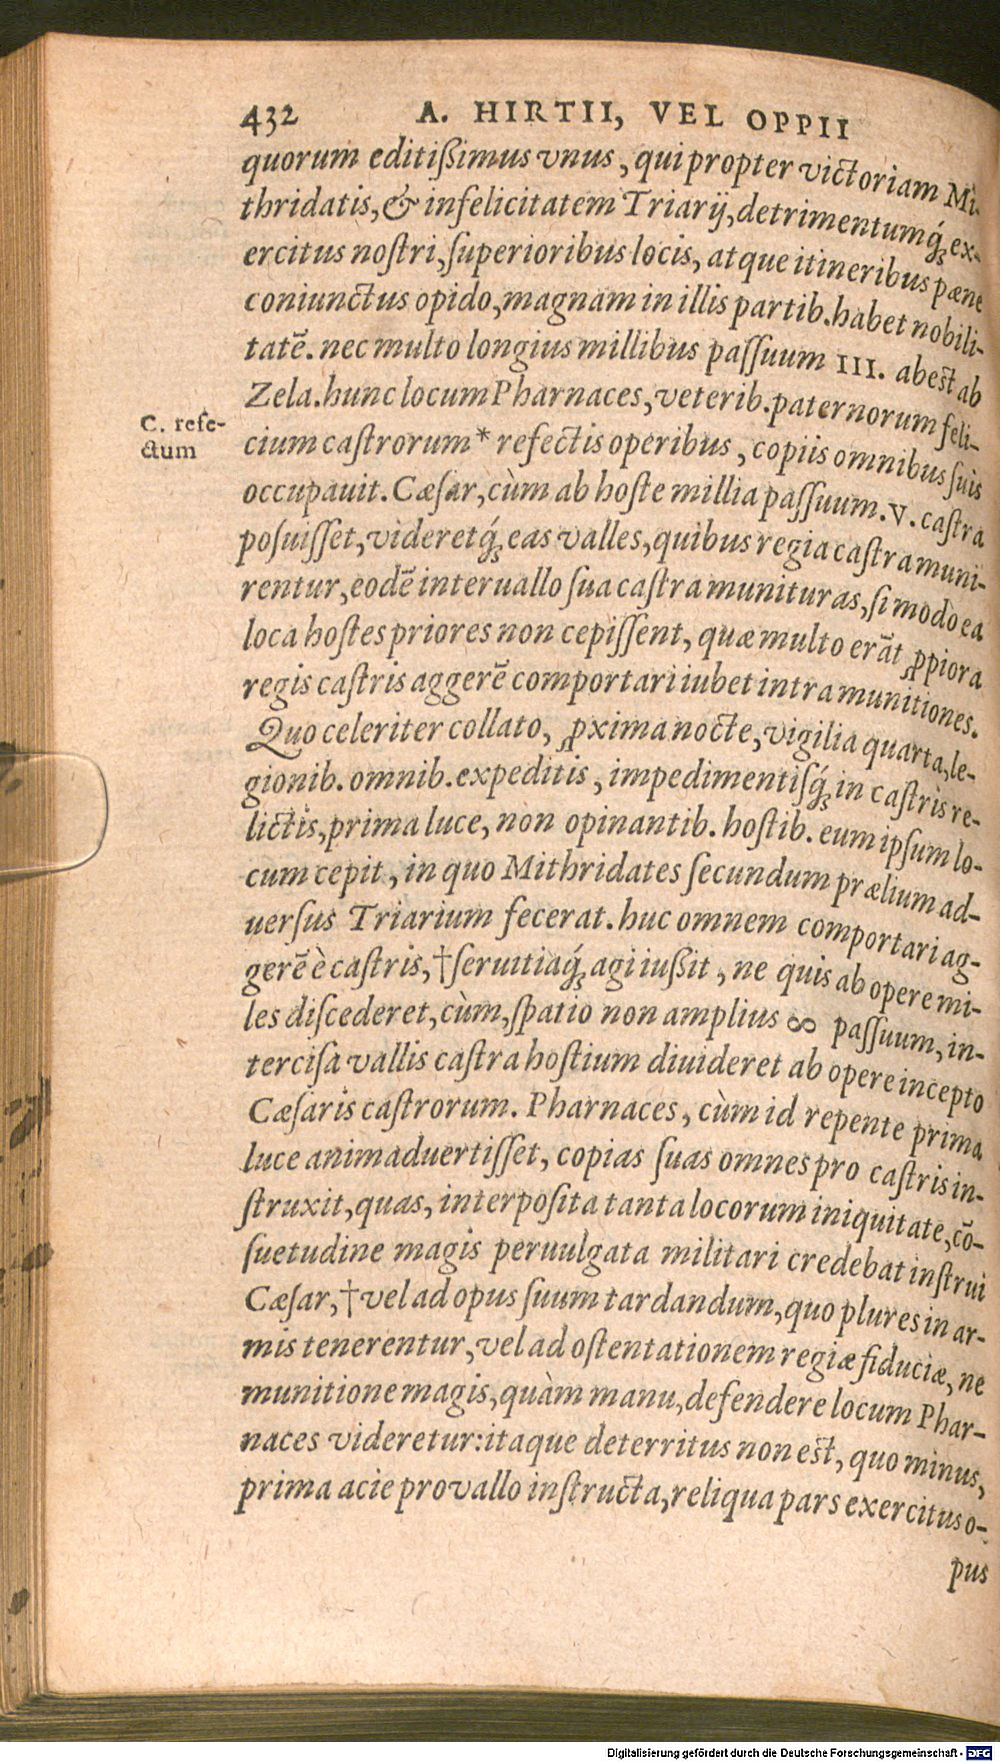 432 A. HIRTII, VEL OPPII
quorum editißimus vnus, qui propter victoriam Mi-
thridatis, & infelicitatem Triarij, detrimentumq́; ex-
ercitus noſtri, ſuperioribus locis, atque itineribus pæne
coniunctus opido, magnam in illis partib. habet nobili-
tatē. nec multo longius millibus paſſuum III. abest ab
Zela. hunc locum Pharnaces, veterib. paternorum feli-
C. refe-
ctum
cium caſtrorum* refectis operibus, copiis omnibus ſuis
occupauit. Cæſar, cùm ab hoſte millia paſſuum. V. caſtra
poſuiſſet, videretq́; eas valles, quibus regia caſtra muni-
rentur, eodē interuallo ſua caſtra munituras, ſi modo ea
loca hoſtes priores non cepiſſent, quæ multo erāt ꝓpiora
regis caſtris aggerē comportari iubet intra munitiones.
Quo celeriter collato, ꝓxima nocte, vigilia quarta, le-
gionib. omnib. expeditis, impedimentiſq́; in caſtris re-
lictis, prima luce, non opinantib. hoſtib. eum ipſum lo-
cum cepit, in quo Mithridates ſecundum prælium ad-
uerſus Triarium fecerat. huc omnem comportari ag-
gerē è caſtris, †ſeruitiaq́; agi iußit, ne quis ab opere mi-
les diſcederet, cùm, ſpatio non amplius ∞ paſſuum, in-
terciſa vallis caſtra hoſtium diuideret ab opere incepto
Cæſaris caſtrorum. Pharnaces, cùm id repente prima
luce animaduertiſſet, copias ſuas omnes pro caſtris in-
ſtruxit, quas, interpoſita tanta locorum iniquitate, cō-
ſuetudine magis peruulgata militari credebat inſtrui
Cæſar, †vel ad opus ſuum tardandum, quo plures in ar-
mis tenerentur, vel ad oſtentationem regiæ fiduciæ, ne
munitione magis, quàm manu, defendere locum Phar-
naces videretur: itaque deterritus non est, quo minus,
prima acie pro vallo inſtructa, reliqua pars exercitus o-
pus
Digitalisierung gefördert durch die Deutsche Forschungsgemeinschaft - DFG